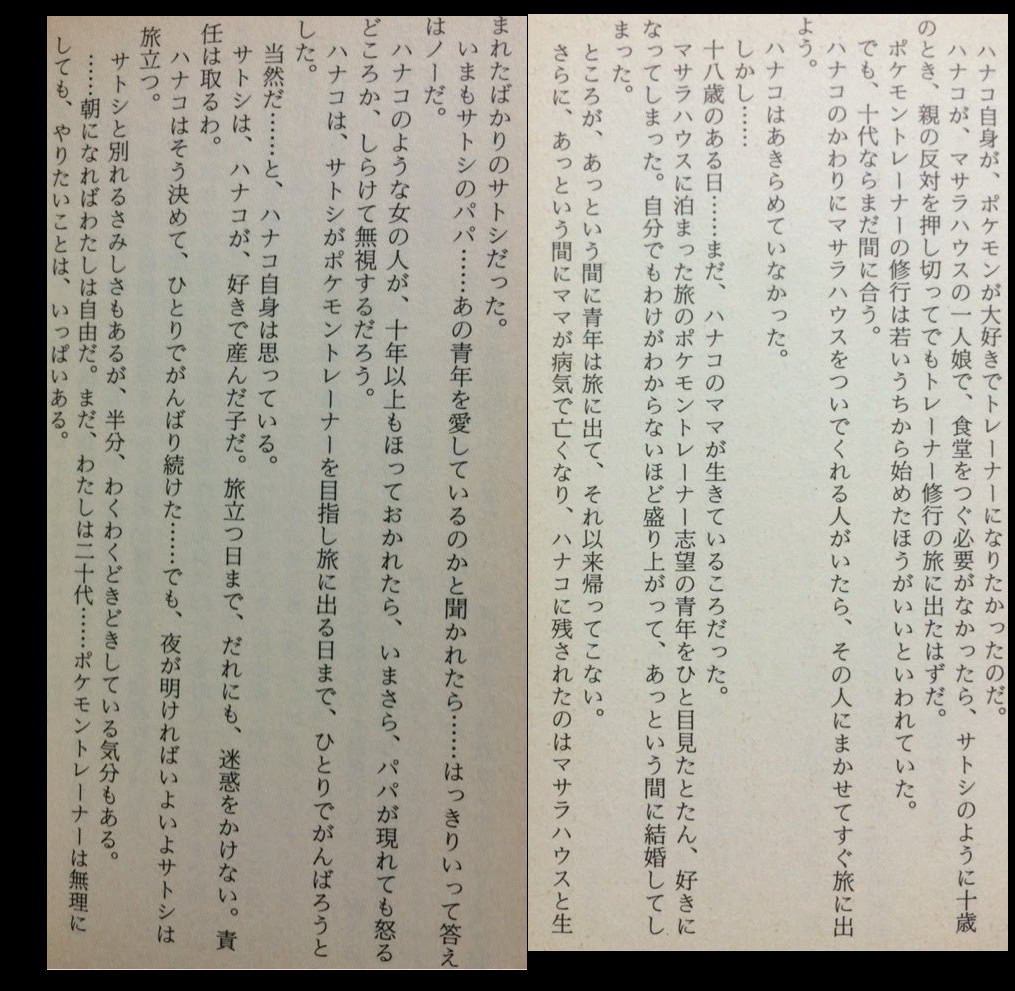 ハナコ自身が、ポケモンが大好きでトレーナーになりたかったのだ。
ハナコが、マサラハウスの一人娘で、食堂をつぐ必要がなかったら、サトシのように十歳
のとき、親の反対を押し切ってでもトレーナー修行の旅に出たはずだ。
ポケモントレーナーの修行は若いうちから始めたほうがいいといわれていた。
でも、十代ならまだ間に合う。
ハナコのかわりにマサラハウスをついでくれる人がいたら、その人にまかせてすぐ旅に出
よう。
ハナコはあきらめていなかった。
しかし……
十八歳のある日……まだ、ハナコのママが生きているころだった。
マサラハウスに泊まった旅のポケモントレーナー志望の青年をひと目見たとたん、好きに
なってしまった。自分でもわけがわからないほど盛り上がって、あっという間に結婚してし
まった。
ところが、あっという間に青年は旅に出て、それ以来帰ってこない。
さらに、あっという間にママが病気で亡くなり、ハナコに残されたのはマサラハウスと生
まれたばかりのサトシだった。
いまもサトシのパパ……あの青年を愛しているのかと聞かれたら……はっきりいって答え
はノーだ。
ハナコのような女の人が、十年以上もほっておかれたら、いまさら、パパが現れても怒る
どころか、しらけて無視するだろう。
ハナコは、サトシがポケモントレーナーを目指し旅に出る日まで、ひとりでがんばろうと
した。
当然だ……と、ハナコ自身は思っている。
サトシは、ハナコが、好きで産んだ子だ。旅立つ日まで、だれにも、迷惑をかけない。責
任は取るわ。
ハナコはそう決めて、ひとりでがんばり続けた……でも、夜が明ければいよいよサトシは
旅立つ。
サトシと別れるさみしさもあるが、半分、わくわくどきどきしている気分もある。
……朝になればわたしは自由だ。まだ、わたしは二十代……ポケモントレーナーは無理に
しても、やりたいことは、いっぱいある。